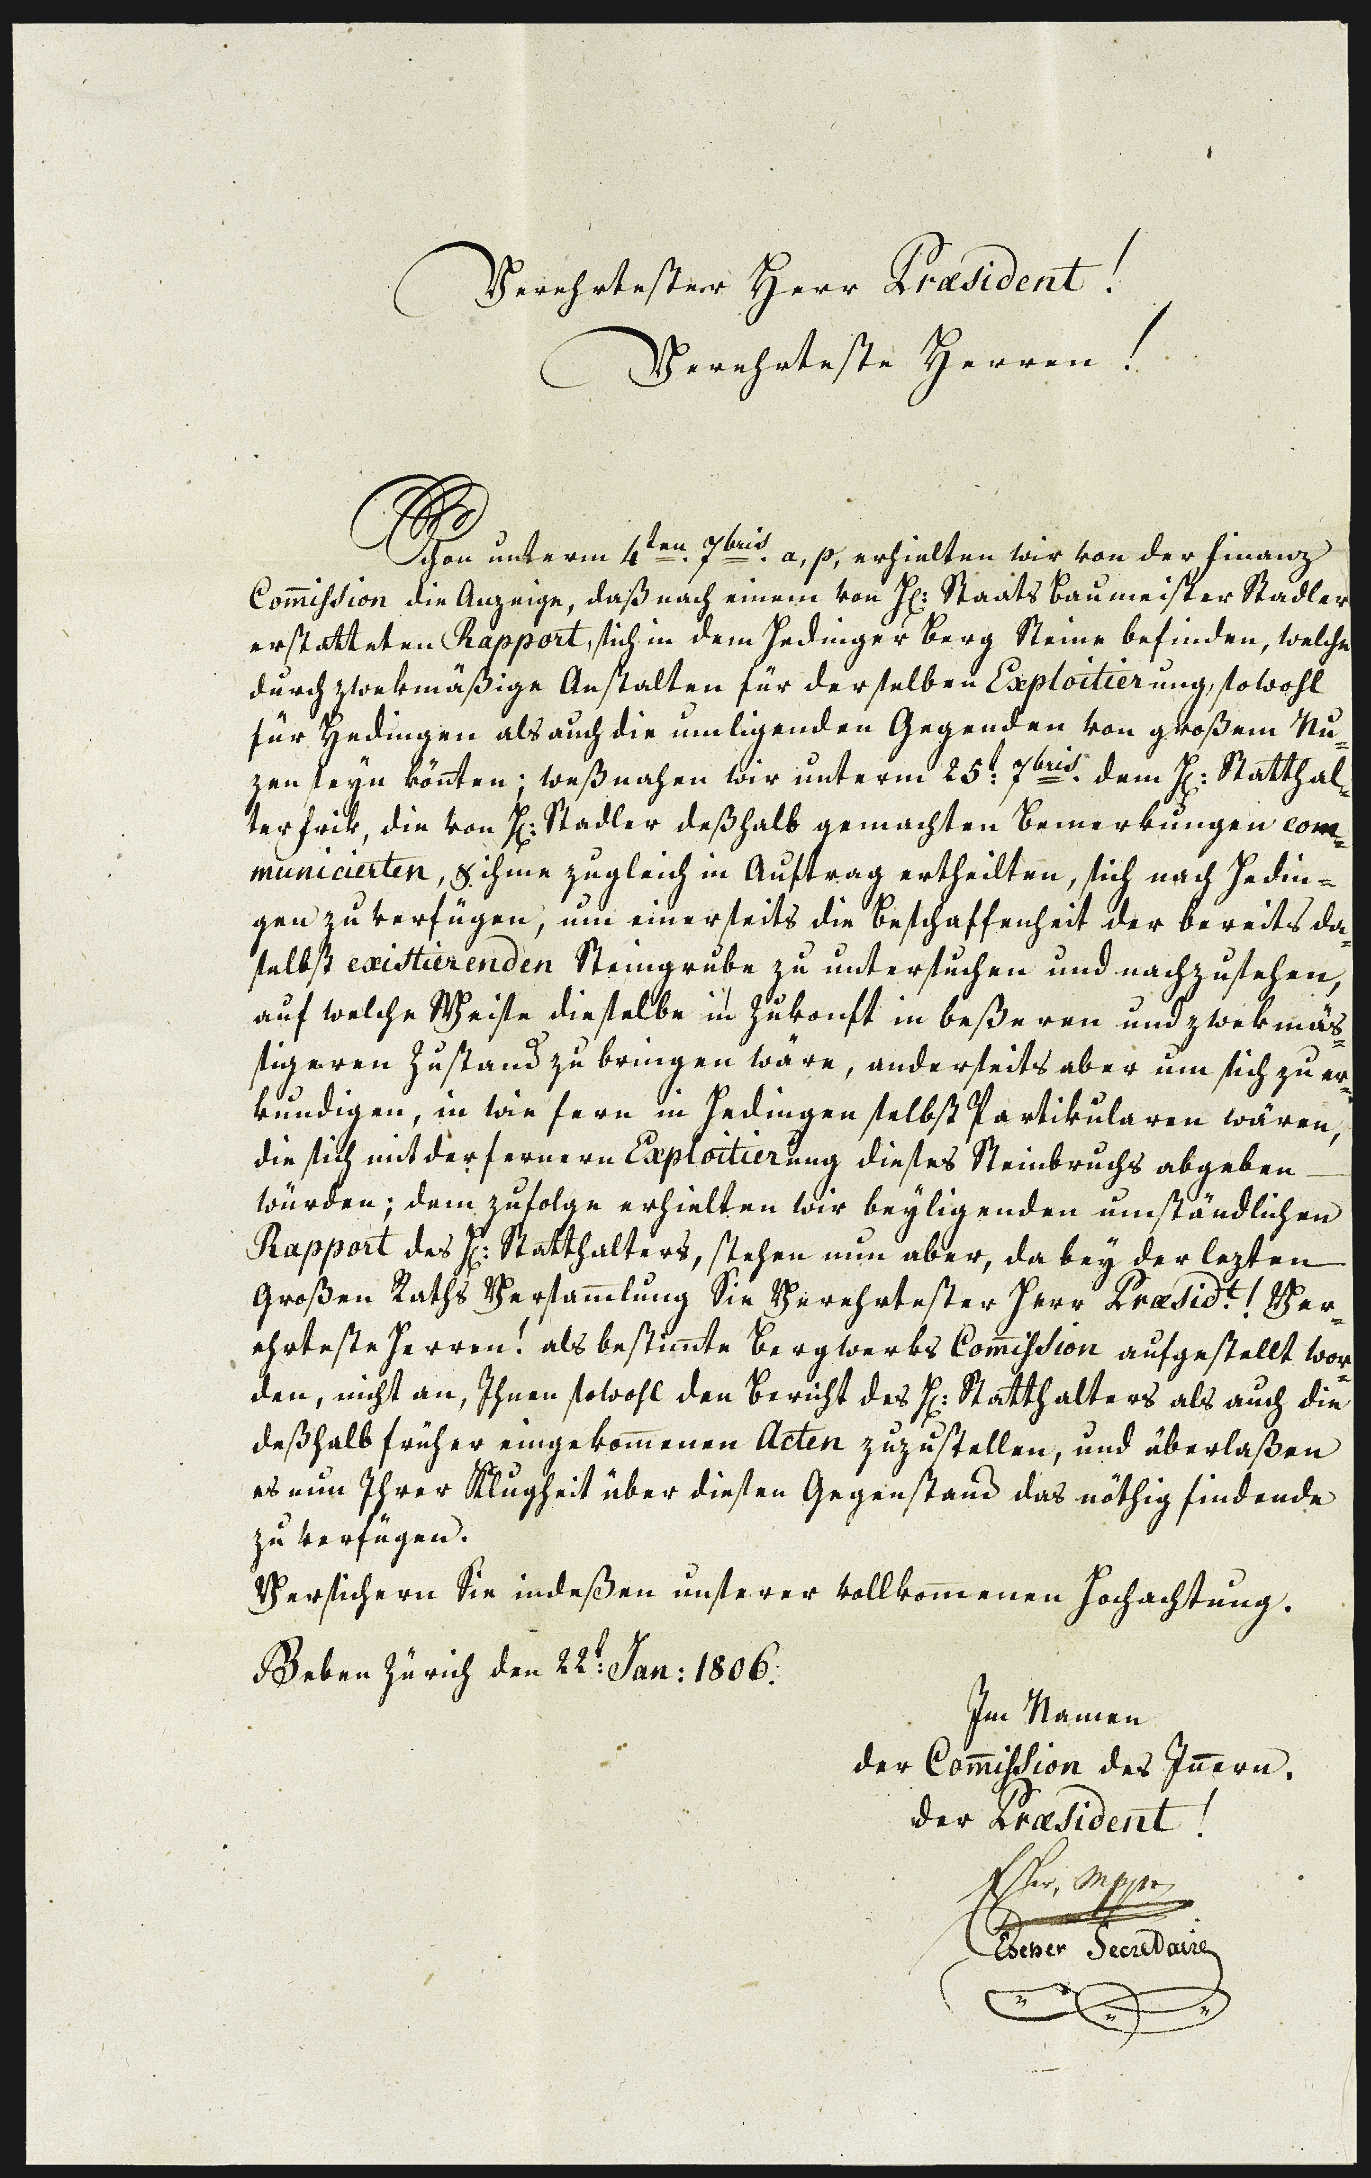 Verehrtester Herr Præsident!
Verehrteste Herren!
Schon unterm 4ten. 7bris. a, p, erhielten wir von der Finanz
Com̅ission die Anzeige, daß nach einem von H: Staats Baumeister Stadler
erstatteten Rapport, sich in dem Hedinger Berg Steine befinden, welche
durch zwekmäßige Anstalten für derselben Exploitierung, sowohl
für Hedingen als auch die umligenden Gegenden von großem Nu-
zen seyn kön̅ten; weßnahen wir unterm 25t: 7bris. dem H: Statthal-
ter Frik, die von H: Stadler deßhalb gemachten Bemerkungen com-
municierten, & ihme zugleich in Auftrag ertheilten, sich nach Hedin=
gen zu verfügen, um einerseits die Beschaffenheit der bereits da-
selbst existierenden Steingrube zu untersuchen und nachzusehen,
auf welche Weise dieselbe in Zukonft in beßeren und zwekmäs=
sigeren Zustand zu bringen wäre, anderseits aber um sich zu er-
kundigen, in wie fern in Hedingen selbst Partikularen wären,
die sich mit der fernern Exploitierung dieses Steinbruchs abgeben
würden; dem zufolge erhielten wir beyligenden umständlichen
Rapport des H: Statthalters, stehen nun aber, da bey der lezten
Großen Raths Versam̅lung Sie Verehrtester Herr Præsidt.! Ver-
ehrteste Herren! als bestim̅te Bergwerks Com̅ission aufgestellt wor-
den, nicht an, Ihnen sowohl den Bericht des H: Statthalters als auch die
deßhalb früher eingekom̅enen Acten zuzustellen, und überlaßen
es nun Ihrer Klugheit über diesen Gegenstand das nöthig findende
zu verfügen.
Versichern Sie indeßen unserer vollkom̅enen Hochachtung.
Geben Zürich den 22t: Jan: 1806.
Im Namen
der Com̅ission des In̅ern.
der Præsident!
Escher, Mppr
Secredaire